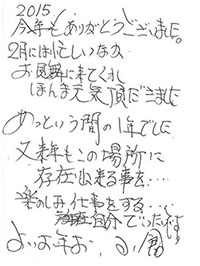 2015/
今年もありがとうございました。
2月には忙しいなか
お見舞に来てくれ
ほんま元気頂だきました
あっという間の1年でした
又来年もこの場所に
存在出来る事を…
楽しみ仕事をする…
自分で
よいお年を